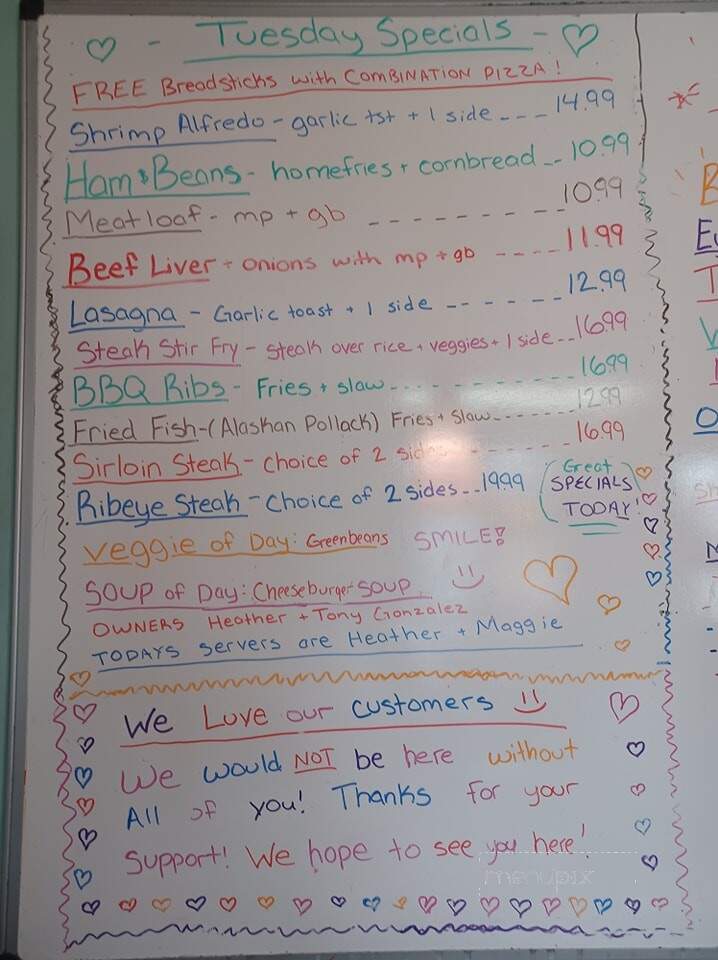 - Tuesday Specials -
FREE Breadsticks with COMBINATION PIZZA!
Shrimp Alfredo - garlic tst + 1 side --- 14.99
Ham & Beans - homefries + cornbread -- 10.99
Meatloaf - mp + gb -------- 10.99
Beef Liver + onions with mp + gb ---- 11.99
Lasagna - Garlic toast + 1 side ------ 12.99
Steak Stir Fry - steak over rice + veggies + 1 side -- 16.99
BBQ Ribs - Fries + slaw ---------- 16.99
Fried Fish - (Alaskan Pollack) Fries + Slaw ------ 12.99
Sirloin Steak - choice of 2 sides ---- 16.99
Ribeye Steak - choice of 2 sides -- 19.99
Great
SPECIALS
TODAY!
Veggie of Day: Greenbeans SMILE!
SOUP of Day: Cheeseburger SOUP
OWNERS Heather + Tony Gonzalez
TODAYS servers are Heather + Maggie
We Luve our customers
We would NOT be here without
All of you! Thanks for your
Support! We hope to see you here!
menupix